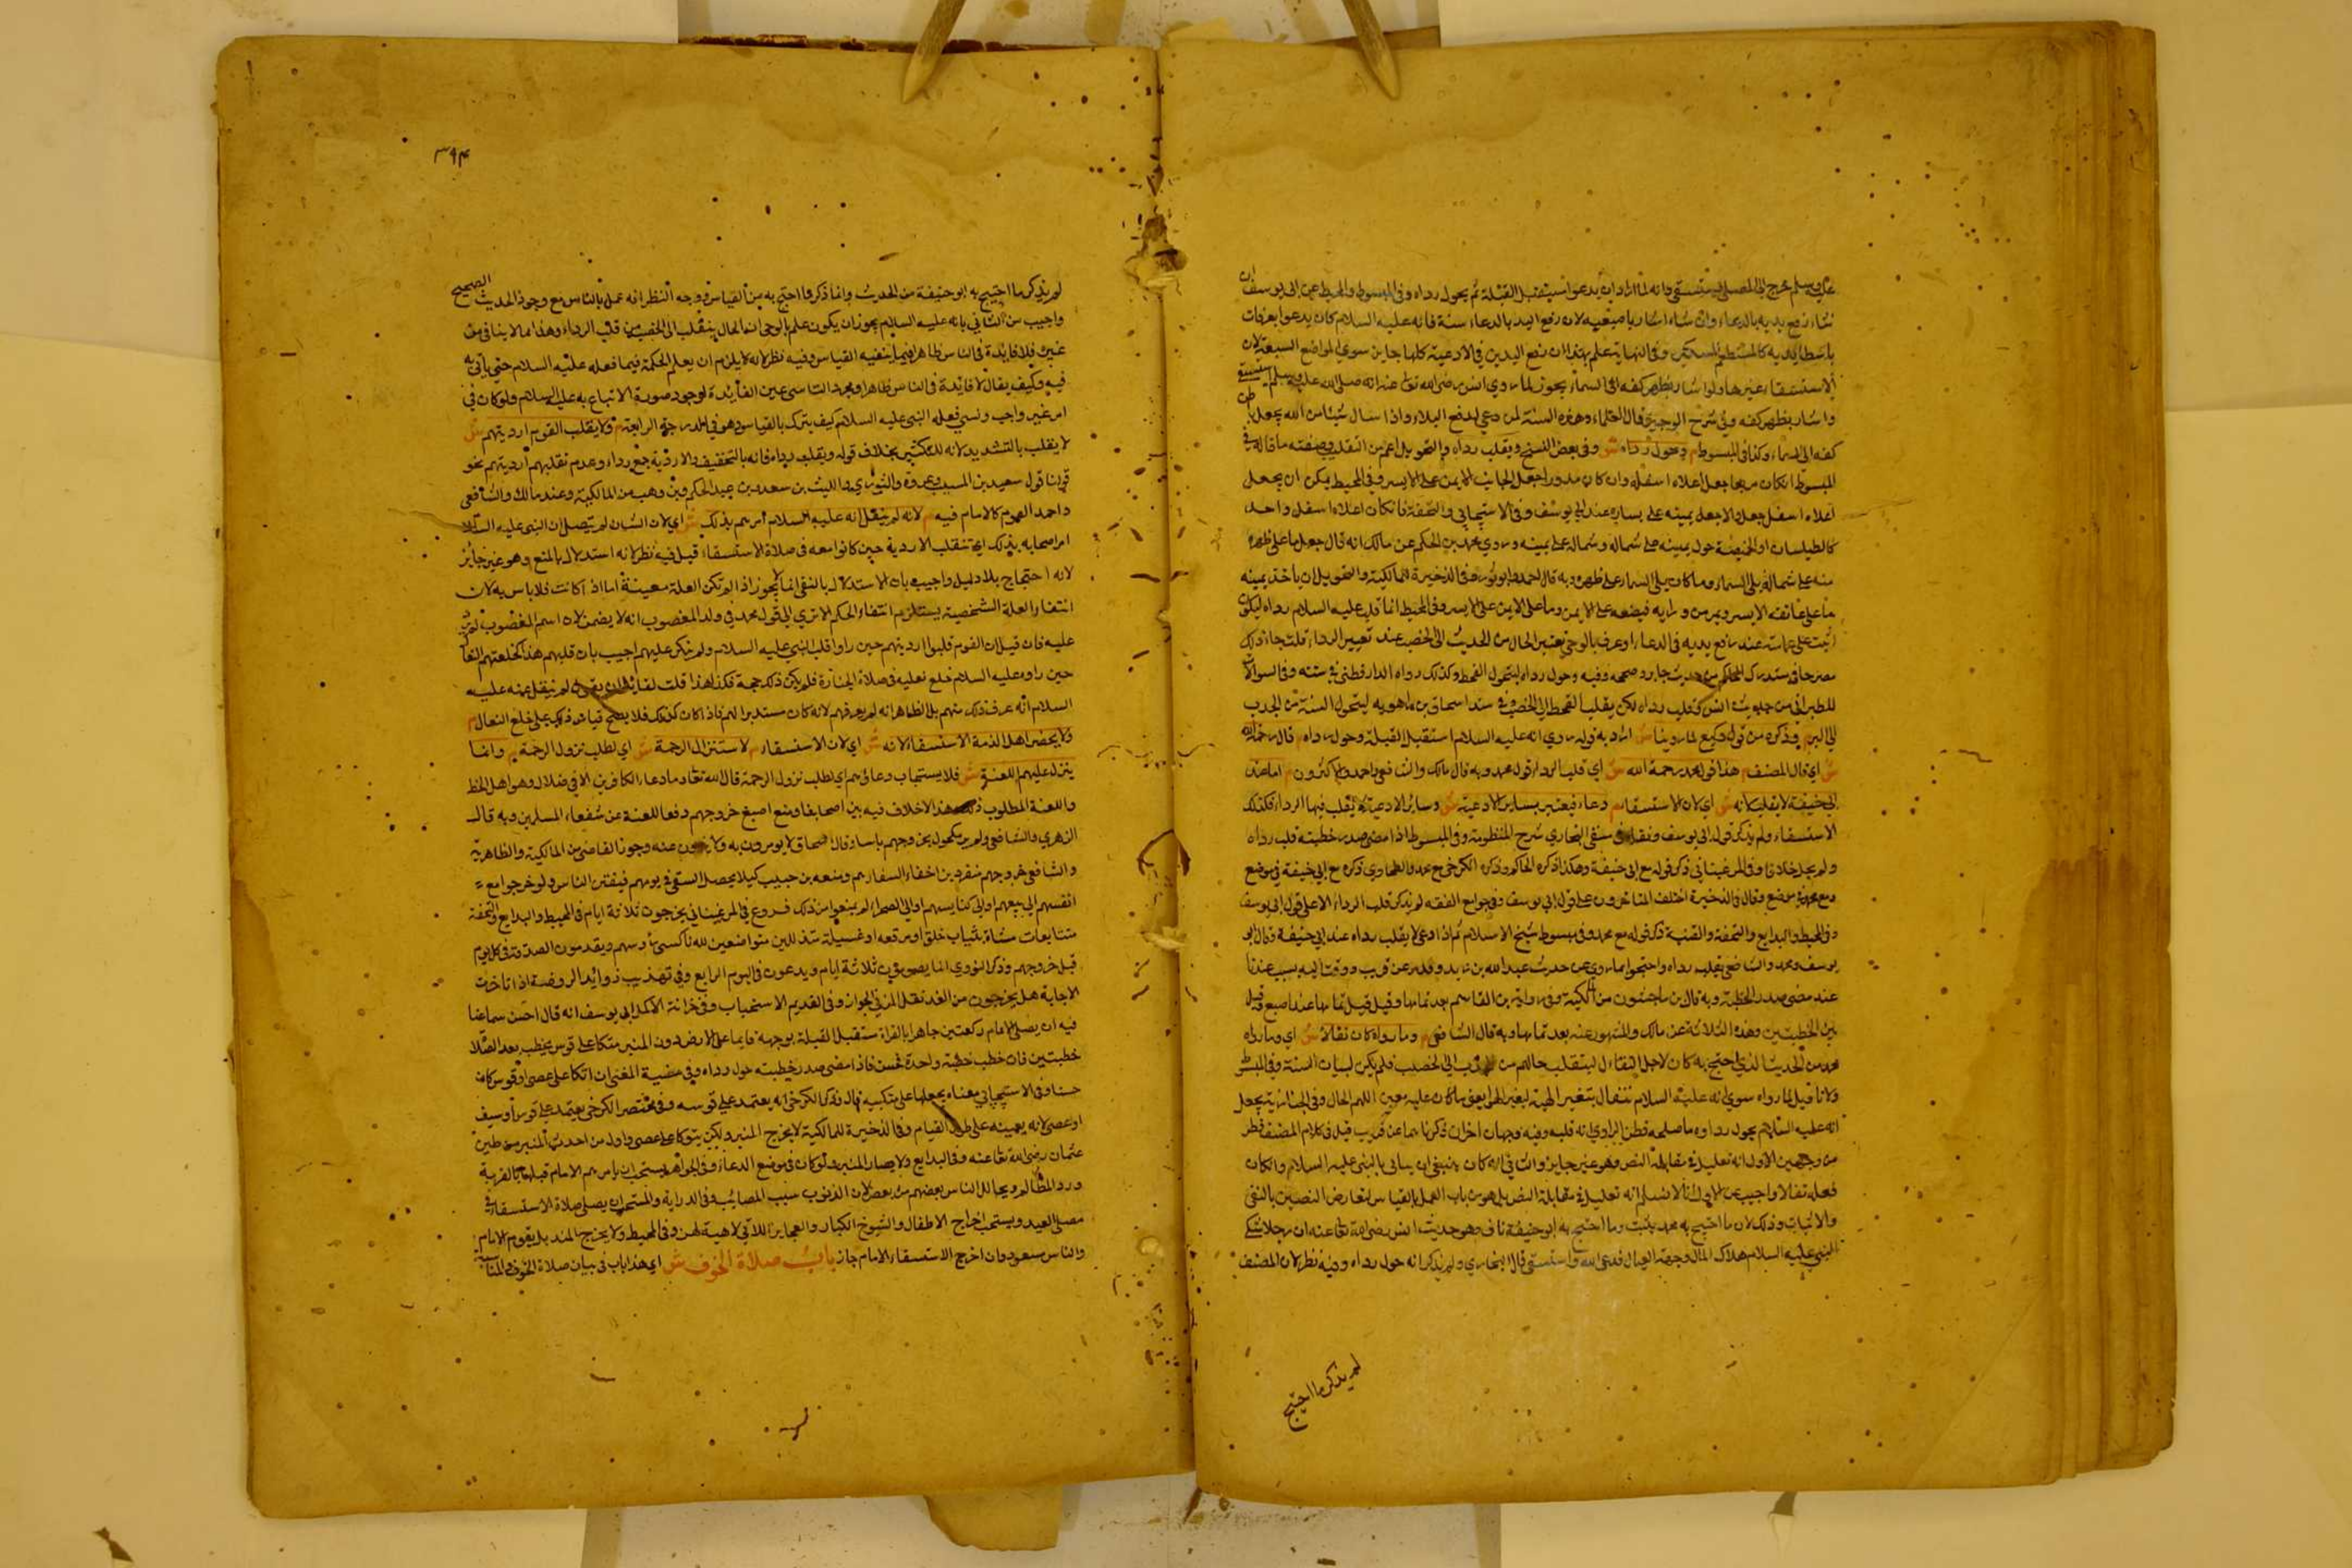 عليه وسلم خرج الى المصلى يستسقي وانه لما اراد ان يدعو استقبل القبلة ثم يحول رداه وفي المبسوط والمحيط عن ابي يوسف ان
شاء رفع يديه بالدعاء وان شاء اشار باصبعيه لان رفع اليد بالدعاء سنة فانه عليه السلام كان يدعوا بعرفات
باسطا يديه كالمستطعم المسكين وفي النهاية علم بهذا ان رفع اليدين في الادعية كلها جايز سوي المواضع السبعة لان
الاستسقاء غيرها ولو اشار بظهر كفه الى السماء يجوز لما روي انس رضي الله تعالى عنه انه صلى الله عليه وسلم استسقى
واشار بظهر كفه وفي شرح الوجيز قال العلماء وهذه السنة لمن دعي لدفع البلاء واذا سال شيئا من الله يجعل بطن
كفه الى السماء وكذا في المبسوط م وحول رداه ش وفي بعض النسخ ويقلب رداه والتحويل اعم من القلب وصفته ما قاله في
المبسوط ان كان مربعا جعل اعلاه اسفله وان كان مدورا جعل الجانب الايمن على الايسر وفي المحيط يمكن ان يجعل
اعلاه اسفل جعل والا جعل يمينه على يساره عند ابي يوسف وفي الاسبيجابي والتحفة فان كان اعلاه اسفل واحد
كالطيلسان او الخميصة حول يمينه على شماله وشماله على يمينه وروي محمد بن الحكم عن مالك انه قال جعل ما على ظهره
منه على شماله يلى السماء وما كان يلى السماء على ظهره وبه قال احمد وابو ثور وفي الذخيرة للمالكية والتحويل ان ياخذ بيمينه
ما على عاتقه الايسر ويمر من ورايه فيضعه على الايمن وما على الايمن على الايسر وفي المحيط انما قلب عليه السلام رداه ليكون
اثبت على عاتقه عند رفع يديه في الدعاء او عرف بالوحي تغير الحال من الجدب الى الخصب عند تغيير الرداء قلت جاء ذلك
مصرحا في مستدرك الحاكم من حديث جابر وصححه وفيه وحول رداه ليتحول القحط وكذلك رواه الدارقطني في سننه وفي السوالات
للطبراني من حديث انس وقلب رداه لكي يقلب القحط الى الخصب وفي مسند اسحاق بن راهويه ليتحول السنة من الجدب
الى البر م وذكره من قول وكيع لما روينا ش اراد به قوله روي انه عليه السلام استقبل القبلة وحول رداه م قال رحمه الله
ش اي قال المصنف م هذا قول محمد رحمه الله ش اي قلب الرداء قول محمد وبه قال مالك والشافعي واحمد والاكثرون م اما عند
ابي حنيفة لا يقلب لانه ش اي لان الاستسقاء م دعاء فيعتبر بساير الادعية ش وساير الادعية لا يقلب فيها الرداء فكذلك
الاستسقاء ولم يذكر قول ابي يوسف النجاري شرح المنظومة وفي المبسوط اذا مضي صدر خطبته قلب رداه
ولم يحك خلافا وفي المرغيناني ذكر قوله مع ابي حنيفة وهكذا ذكره الحاكم وذكره الكرخي مع محمد والطحاوي ذكره مع ابي حنيفة في موضع
ومع محمد في موضع وقال في الذخيرة اختلف المتاخرون على قول ابي يوسف وفي جوامع الفقه لم يذكر قلب الرداء الا على قول ابي يوسف
وفي المحيط والبدايع والتحفة والقنية ذكر قوله مع محمد وفي مبسوط شيخ الاسلام ثم اذا دعي لا يقلب رداه عند ابي حنيفة وقال ابو
يوسف ومحمد والشافعي يقلب رداه واحتجوا بما روي عن حديث عبد الله بن زيد وقد مر عن قريب ووقت قلبه عندنا
عند مضي صدر الخطبة وبه قال بن ماجشون من المالكية وفي رواية بن القاسم بعد تمامها وقيل قبل تمامها عند اصبغ وقيل
بين الخطبتين وهذه الثلاثة عن مالك والمشهور عنه بعد تمامها وبه قال الشافعي م وما رواه كان تفالا ش اي وما رواه
محمد من الحديث الذي احتج به كان لاجل التفاءل لينقلب حالهم من الجدب الى الخصب فلم يكن لبيان السنة وفي المبسوط
ولانا قيل لما رواه سوي انه عليه السلام تفال بتغير الهيئة لتغير الهوا يعني ما كان عليه مغير اللهم الحال وفي الجنازية يحتمل
انه عليه السلام يحول رداه وما صلحه فظن الراوي انه قلبه وفيه وجهان اخران ذكرناهما عن قريب قيل في كلام المصنف نظر
من وجهين الاول انه تعليل في مقابلة النص وهو غير جايز والثاني انه كان ينبغي ان يتاسى بالنبي عليه السلام وان كان
فعله تفالا واجيب عن الاول انا لا نسلم انه تعليل في مقابلة النص بل هو من باب العمل بالقياس لتعارض النصين بالنفي
والاثبات وذلك لان ما احتج به محمد يثبت وما احتج به ابو حنيفة ناف وهو حديث انس رضي الله تعالى عنه ان رجلا شكي
النبي عليه السلام هلاك المال وجهد العيال فدعى الله واستسقي قال البخاري ولم يذكر انه حول رداه وفيه نظر لان المصنف
لم يذكر ما احتج
٣٩٤
لم يذكر ما احتج به ابو حنيفة من الحديث وانما ذكر ما احتج به من القياس ووجه النظر انه عمل بالقياس مع وجود الحديث الصحيح
واجيب من الثاني بانه عليه السلام يجوز ان يكون علم بالوحي ان الحال ينقلب الى الخصب متى قلب الرداء وهذا مما لا يتاتى من
غيره فلا فايدة في التاسي ظاهرا فيما ينفيه القياس وفيه نظر لانه لا يلزم ان يعلم الحكمة فيما فعله عليه السلام حتى ياتي به
فيه وكيف يقال لا فايدة في التاسي ظاهرا ومجرد التاسي عين الفايدة لوجود صورة الاتباع به عليه السلام ولو كان في
امر غير واجب وليس فعله النبي عليه السلام كيف يترك بالقياس وهو في الدرجة الرابعة م ولا يقلب القوم ارديتهم ش
لا يقلب بالتشديد لانه للتكثير بخلاف قوله ويقلب رداه فانه بالتخفيف والاردية جمع رداء وعدم تقليبهم ارديتهم نحو
قولنا قول سعيد بن المسيب وعروة والثوري والليث بن سعد وبن عبد الحكم وبن وهب من المالكية وعند مالك والشافعي
واحمد القوم كالامام فيه م لانه لم ينقل انه عليه السلام امرهم بذلك ش اي لان الشان لم يتصل ان النبي عليه السلام
امر اصحابه بذلك اي تنقلب الاردية حين كانوا معه في صلاة الاستسقاء قيل فيه نظر لانه استدلال بالمنع وهو غير جايز
لانه احتجاج بلا دليل واجيب بان الاستدلال بالنفي انما لا يجوز اذا لم تكن العلة معينة اما اذا كانت فلا باس به لان
انتفاء العلة الشخصية يستلزم انتفاء الحكم الا تري الى قول محمد في ولد المغصوب انه لا يضمن لان اسم الغصب لم يرد
عليه فان قيل ان القوم قلبوا ارديتهم حين راوا قلب النبي عليه السلام ولم ينكر عليهم اجيب بان قلبهم هذا كخلعهم النعال
حين راوه عليه السلام خلع نعليه في صلاة الجنازة فلم يكن ذلك حجة فكذا هذا قلت لقايل ان يقول لم ينقل عنه عليه
السلام انه عرف ذلك منهم بل الظاهر انه لم يعرفهم لانه كان مستدبرا لهم فاذا كان كذلك فلا يصح قياس ذلك على خلع النعال م
ولا يحضر اهل الذمة الاستسقاء لانه ش اي لان الاستسقاء م لاستنزال الرحمة ش اي لطلب نزول الرحمة م وانما
ينزل عليهم اللعنة ش فلا يستجاب دعاؤهم اي لطلب نزول الرحمة قال الله تعالى وما دعاء الكافرين الا في ضلال وهو اهل الحظ
واللعنة المطلوب هذا الاختلاف فيه بين اصحابنا ومنع اصبغ خروجهم دفعا للعنة عن شفعاء المسلمين وبه قال
الزهري والشافعي ولم ير مكحول بخروجهم باسا وقال اسحاق لا يومرون به ولا ينهون عنه وجوز القاضي من المالكية والظاهرية
والشافعي خروجهم منفردين اخفاء السفارهم ومنعه بن حبيب كيلا يحصل السقي في يومهم فيفتتن الناس ولو خرجوا مع
انفسهم الى بيعهم او الى كنايسهم او الى الصحراء لم يمنعوا من ذلك فروع في المرغيناني يخرجون ثلاثة ايام في المحيط والبدايع والتحفة
متتابعات مشاة بثياب خلق او مرقعة او غسيلة متذللين متواضعين لله ناكسي رؤسهم ويقدمون الصدقة في كل يوم
قبل خروجهم وذكر النووي انما يصومون ثلاثة ايام ويدعون في اليوم الرابع وفي تهذيب زوائد الروضة اذا تاخرت
الاجابة هل يخرجون من الغد نقل المزني الجواز وفي القديم الاستحباب وفي خزانة الاكمل ابي يوسف انه قال احسن سماعنا
فيه ان يصلي الامام ركعتين جاهرا بالقراءة مستقبل القبلة بوجهه قايما على الارض دون المنبر متكا على قوس يخطب بعد الصلاة
خطبتين فان خطب خطبة واحدة فحسن فاذا مضى صدر خطبته حول رداه وفي منية المغني ان اتكا على عصى او قوس كان
حسنا وفي الاسبيجابي معناه يجعلها على منكبيه قال وذكر الكرخي انه يعتمد على قوسه وفي مختصر الكرخي يعتمد على قوس او سيف
او عصى لانه يعينه على طول القيام وفي الذخيرة للمالكية لا يخرج المنبر ولكن يتوكا على عصى واول من احدث المنبر من طين
عثمان رضي الله تعالى عنه وفي البدايع ولا يصار المنبر ولو كان في موضع الدعاء وفي الجواهر يستحب ان يامرهم الامام قبلها بالقربة
ورد المظالم ويحالل الناس بعضهم من بعض لان الذنوب سبب المصائب وفي الدراية والمستحب ان يصلي صلاة الاستسقاء في
مصلى العيد ويستحب اخراج الاطفال والشيوخ الكبار والعجايز اللاتي لا هيئة لهن وفي المحيط ولا يخرج المنبر بل يقوم الامام
والناس سعود وان اخرج الاستسقاء الامام جاز باب صلاة الخوف ش اي هذا باب في بيان صلاة الخوف والمناسبة